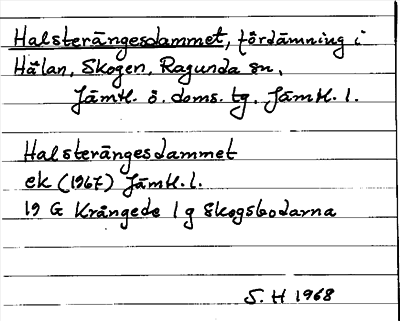 Halsterängesdammet, fördämning i
Hälan, Skogen, Ragunda sn,
Jämtl. ö. doms. tg. Jämtl. l.
Halsterängesdammet
ek (1967) Jämtl. l.
19 G Krångede 1 g Skogsbodarna
S. H 1968